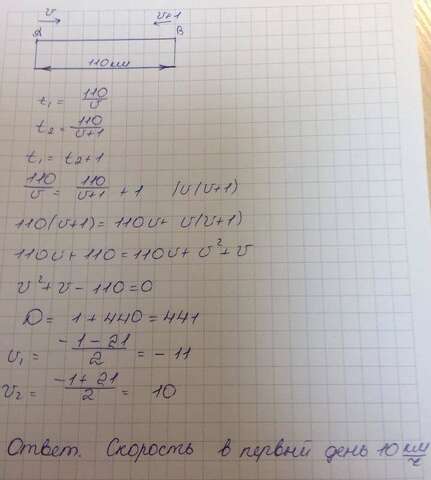 v v+1
A B
110 км
t₁ = 110/v
t₂ = 110/v+1
t₁ = t₂+1
110/v = 110/v+1 + 1 /v(v+1)
110(v+1) = 110v + v(v+1)
110v + 110 = 110v + v² + v
v² + v - 110 = 0
D = 1 + 440 = 441
v₁ = -1-21/2 = -11
v₂ = -1+21/2 = 10
Ответ. Скорость в первый день 10 км/ч